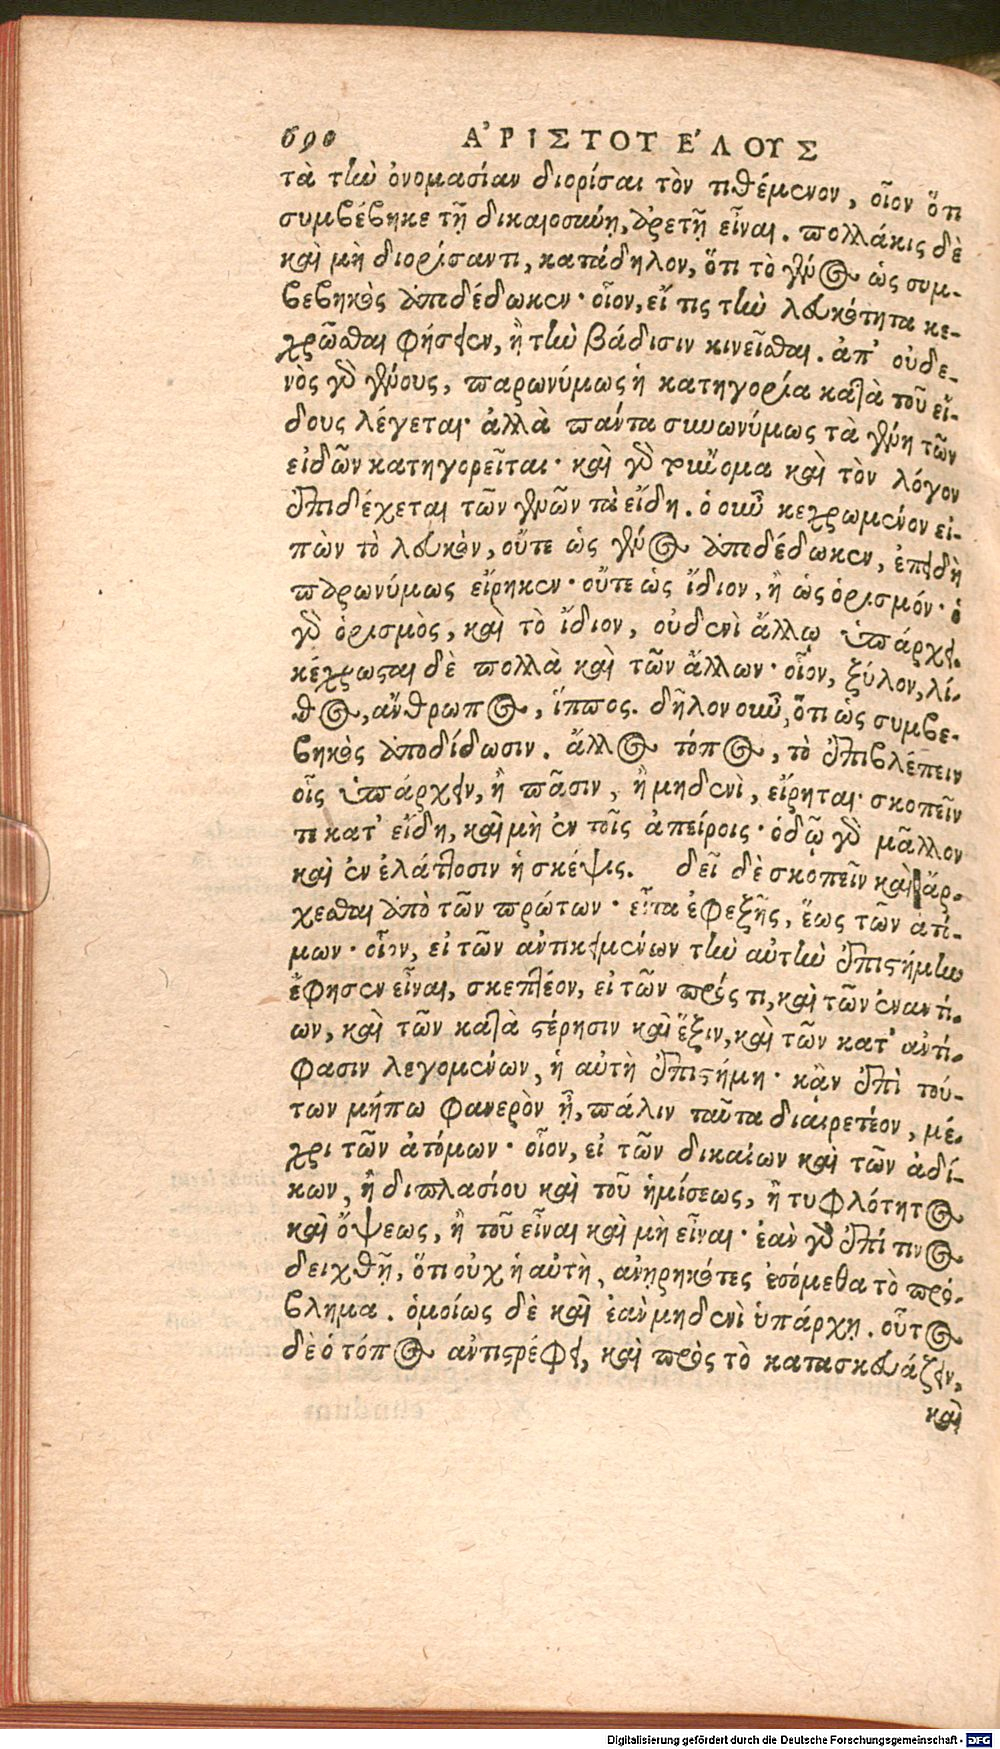 690 ἈΡΙΣΤΟΤΕΛΟΥΣ
τὰ τὴν ὀνομασίαν διορίσαι τὸν τιθέμενον, οἷον ὅτι
συμβέβηκε τῇ δικαιοσύνῃ, ἀρετῇ εἶναι. πολλάκις δὲ
καὶ μὴ διορίσαντι, κατάδηλον, ὅτι τὸ γένος ὡς συμ-
βεβηκὸς ἀποδέδωκεν· οἷον, εἴ τις τὴν λευκότητα κε-
χρῶσθαι φήσειεν, ἢ τὴν βάδισιν κινεῖσθαι. ἀπ' οὐδε-
νὸς γὰρ γένους, παρωνύμως ἡ κατηγορία κατὰ τοῦ εἴ-
δους λέγεται· ἀλλὰ πάντα συνωνύμως τὰ γένη τῶν
εἰδῶν κατηγορεῖται· καὶ γὰρ τοὔνομα καὶ τὸν λόγον
ἐπιδέχεται τῶν γενῶν τὰ εἴδη. ὁ οὖν κεχρωμένον εἰ-
πὼν τὸ λευκὸν, οὔτε ὡς γένος ἀποδέδωκεν, ἐπειδὴ
παρωνύμως εἴρηκεν· οὔτε ὡς ἴδιον, ἢ ὡς ὁρισμόν· ὁ
γὰρ ὁρισμὸς, καὶ τὸ ἴδιον, οὐδενὶ ἄλλῳ ὑπάρχει.
κέχρωσται δὲ πολλὰ καὶ τῶν ἄλλων· οἷον, ξύλον, λί-
θος, ἄνθρωπος, ἵππος. δῆλον οὖν, ὅτι ὡς συμβε-
βηκὸς ἀποδίδωσιν. ἄλλος τόπος, τὸ ἐπιβλέπειν
οἷς ὑπάρχειν, ἢ πᾶσιν, ἢ μηδενὶ, εἴρηται· σκοπεῖν
τε κατ' εἴδη, καὶ μὴ ἐν τοῖς ἀπείροις· ὁδῷ γὰρ μᾶλλον
καὶ ἐν ἐλάττοσιν ἡ σκέψις. δεῖ δὲ σκοπεῖν καὶ ἄρ-
χεσθαι ἀπὸ τῶν πρώτων· εἶτα ἐφεξῆς, ἕως τῶν ἀτό-
μων· οἷον, εἰ τῶν ἀντικειμένων τὴν αὐτὴν ἐπιστήμην
ἔφησεν εἶναι, σκεπτέον, εἰ τῶν πρός τι, καὶ τῶν ἐναντί-
ων, καὶ τῶν κατὰ στέρησιν καὶ ἕξιν, καὶ τῶν κατ' ἀντί-
φασιν λεγομένων, ἡ αὐτὴ ἐπιστήμη· κἂν ἐπὶ τού-
των μήπω φανερὸν ᾖ, πάλιν ταῦτα διαιρετέον, μέ-
χρι τῶν ἀτόμων· οἷον, εἰ τῶν δικαίων καὶ τῶν ἀδί-
κων, ἢ διπλασίου καὶ τοῦ ἡμίσεως, ἢ τυφλότητος
καὶ ὄψεως, ἢ τοῦ εἶναι καὶ μὴ εἶναι· ἐὰν γὰρ ἐπί τινος
δειχθῇ, ὅτι οὐχ ἡ αὐτὴ, ἀνῃρηκότες ἐσόμεθα τὸ πρό-
βλημα. ὁμοίως δὲ καὶ ἐὰν μηδενὶ ὑπάρχῃ. οὗτος
δὲ ὁ τόπος ἀντιστρέφει, καὶ πρὸς τὸ κατασκευάζειν,
καὶ
Digitalisierung gefördert durch die Deutsche Forschungsgemeinschaft - DFG